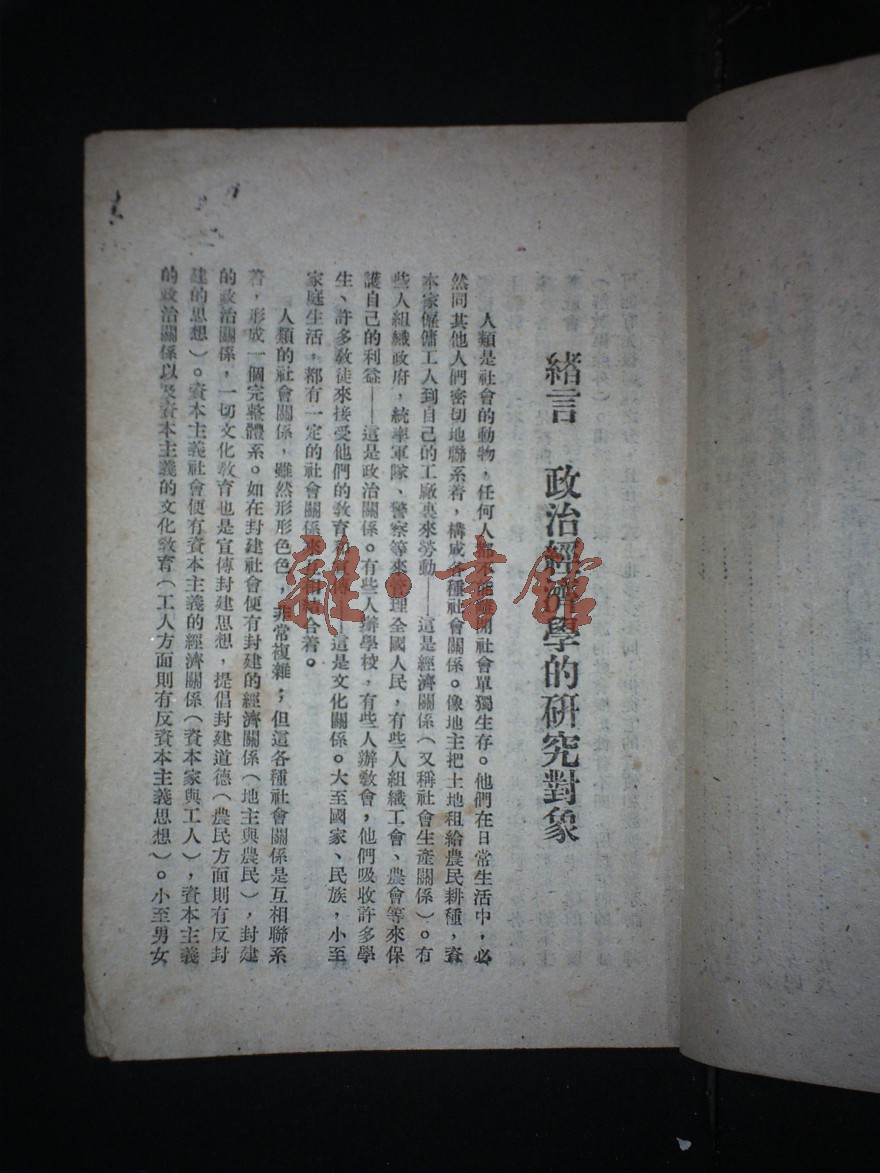 緒言　政治經濟學的研究對象
人類是社會的動物，任何人都不能離開社會單獨生存。他們在日常生活中，必
然同其他人們密切地聯系着，構成各種社會關係。像地主把土地租給農民耕種，資
本家僱傭工人到自己的工廠裏來勞動——這是經濟關係（又稱社會生產關係）。有
些人組織政府，統率軍隊、警察等來管理全國人民，有些人組織工會、農會等來保
護自己的利益——這是政治關係。有些人辦學校，有些人辦敎會，他們吸收許多學
生、許多敎徒來接受他們的敎育和宣傳——這是文化關係。大至國家、民族，小至
家庭生活，都有一定的社會關係來互相結合着。
人類的社會關係，雖然形形色色，非常複雜；但這各種社會關係是互相聯系
着，形成一個完整體系。如在封建社會便有封建的經濟關係（地主與農民），封建
的政治關係，一切文化敎育也是宣傳封建思想，提倡封建道德（農民方面則有反封
建的思想）。資本主義社會便有資本主義的經濟關係（資本家與工人），資本主義
的政治關係以及資本主義的文化敎育（工人方面則有反資本主義思想）。小至男女
雜·書館